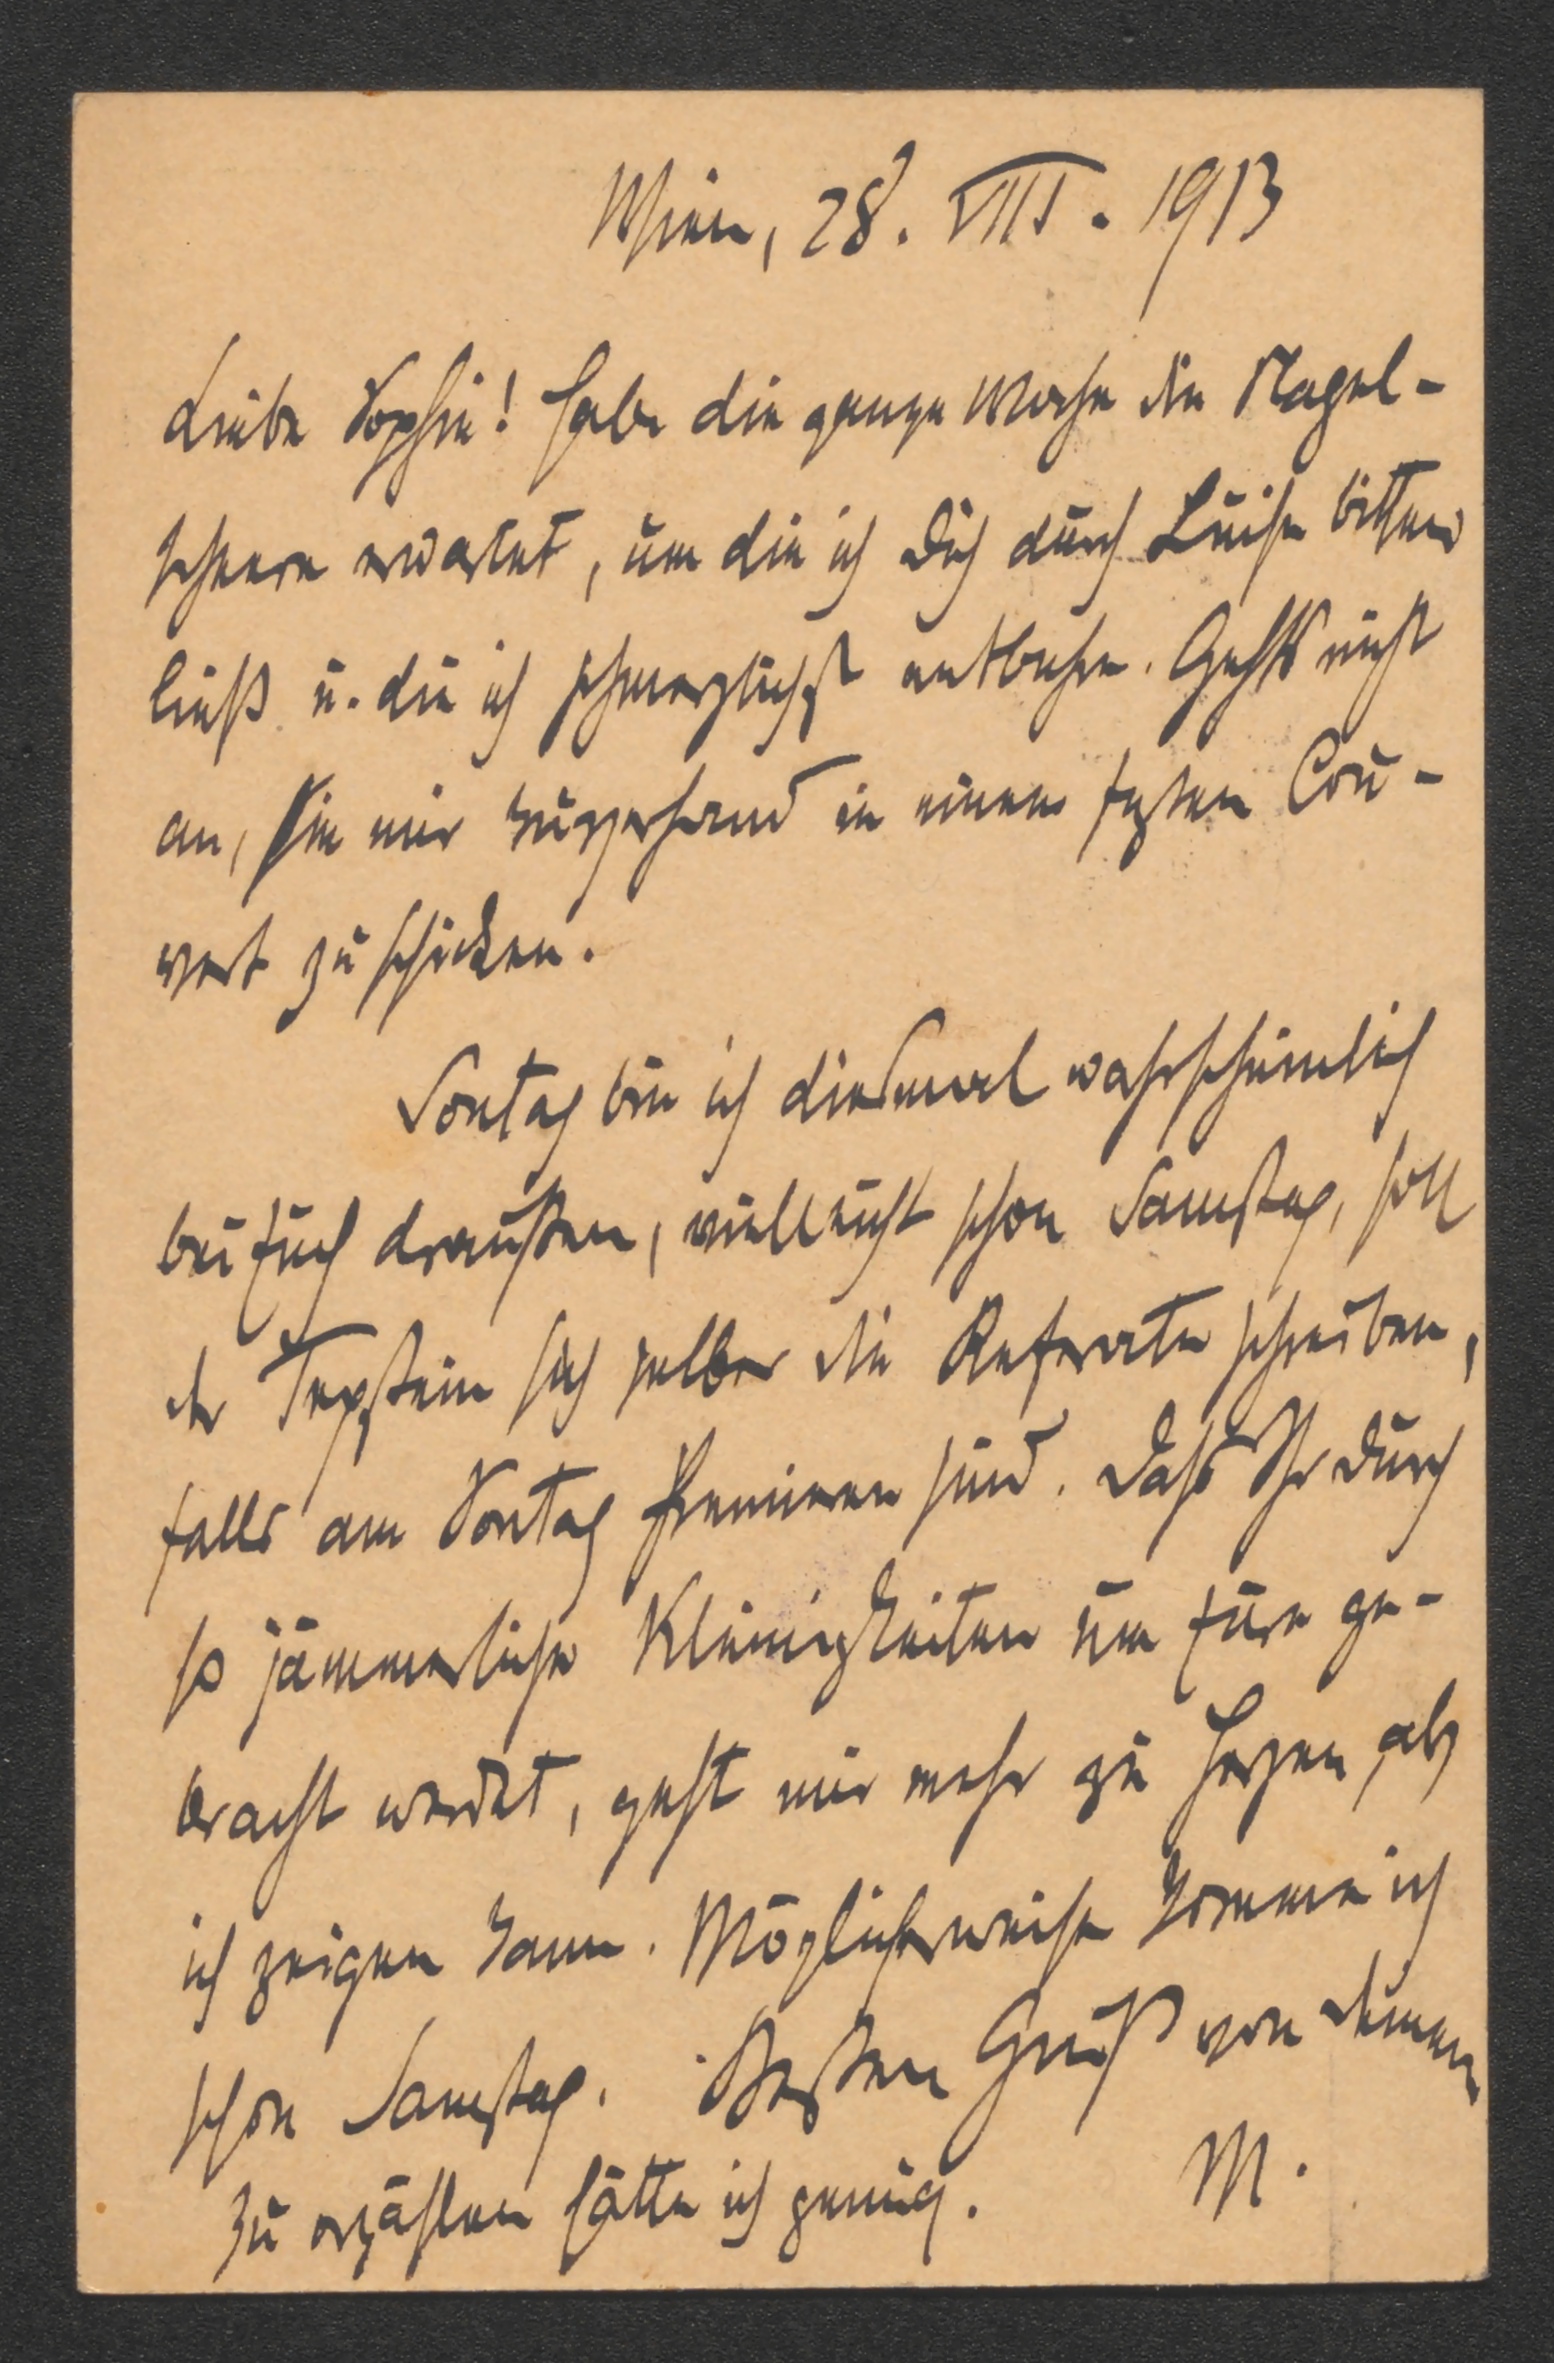 Wien, 28. VIII. 1913
Liebe Sophie! Habe die ganze Woche die Nagel-
scheere erwartet, um die ich Dich durch Luise bitten
ließ u. die ich schmerzlichst entbehre. Gehts nicht
an, sie mir kurzerhand in einem festen Cou-
vert zu schicken.
Sontag bin ich diesmal wahrscheinlich
bei Euch draußen, vielleicht schon Samstag, soll
der Tepstein sich selber die Referate schreiben,
falls am Sontag Premieren sind. Dass Ihr durch
so jämmerliche Kleinigkeiten um Eure ge-
bracht werdet, geht mir mehr zu Herzen als
ich zeigen kann. Möglicherweise komme ich
schon Samstag. Besten Gruß von Deinem
M.
Zu erzählen hätte ich genug.